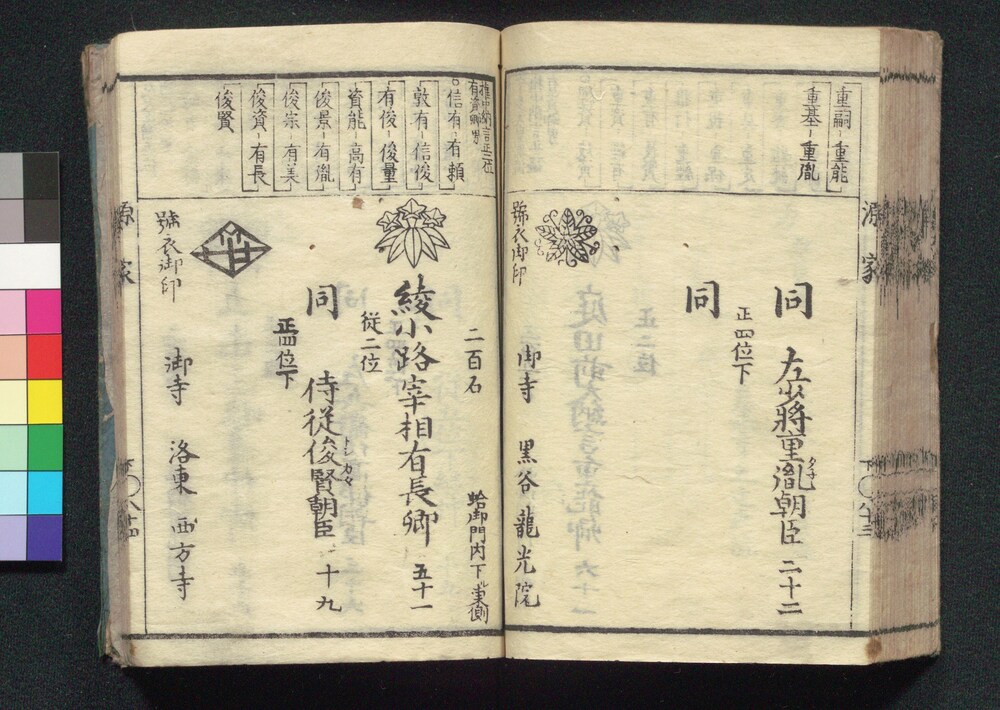 源家
重嗣 重能
重基 重胤
同
左少将重胤朝臣 二十二
正四位下
同
號衣御印
御寺 黒谷 龍光院
権中納言正二位
有資卿男
信有 有頼
敦有 信俊
有俊 俊量
資能 高有
俊景 有胤
俊宗 有美
俊資 有長
俊賢
二百石
蛤御門内下ル東側
綾小路宰相有長卿 五十一
従二位
同
侍従俊賢朝臣 十九
正四位下
號衣御印
御寺 洛東 西方寺
源家